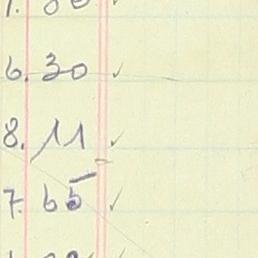 6.30 ✓
8.11 ✓
7.65 ✓